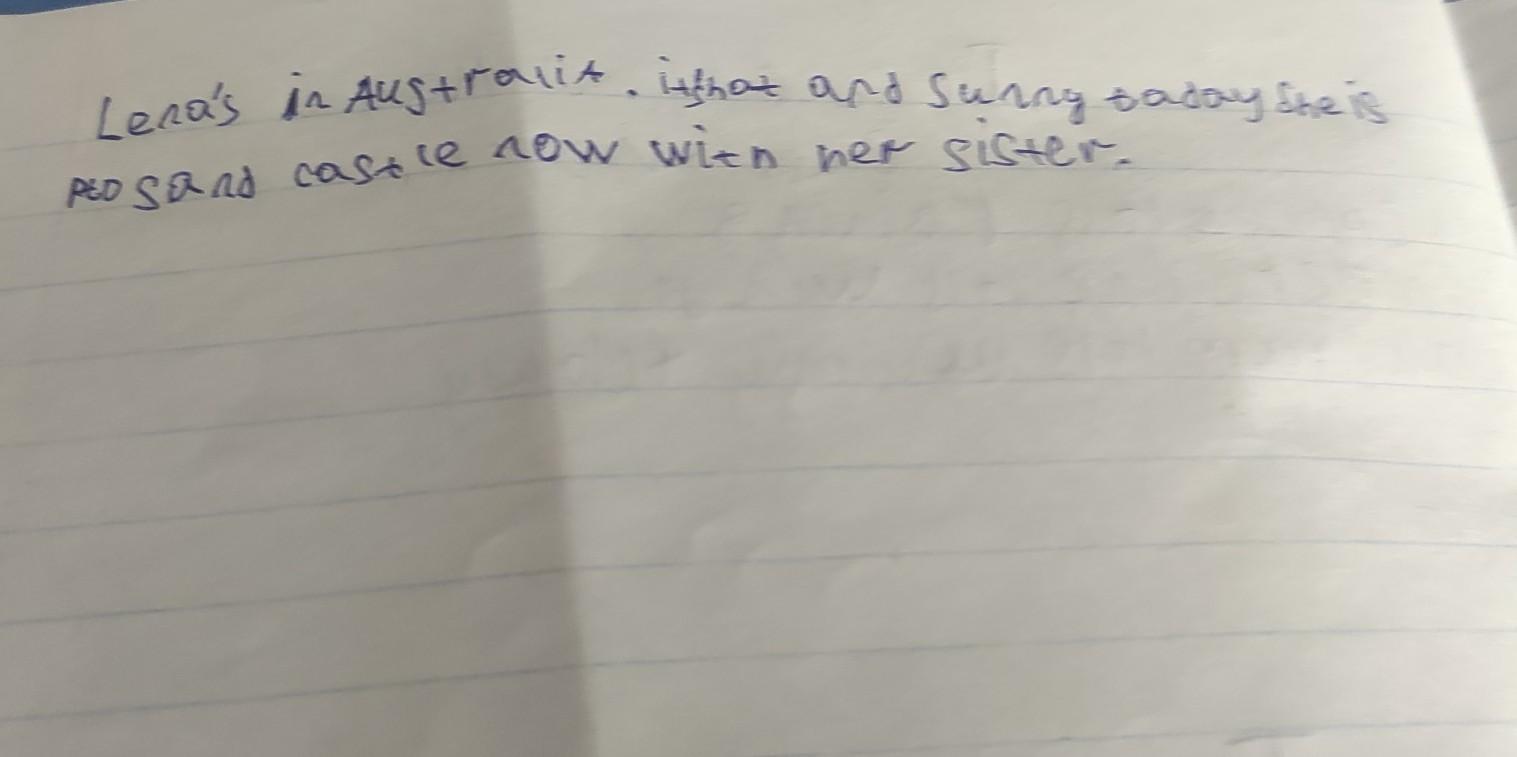 Lena's in Australia. it's hot and sunny taday She is
sand castle now with her sister.